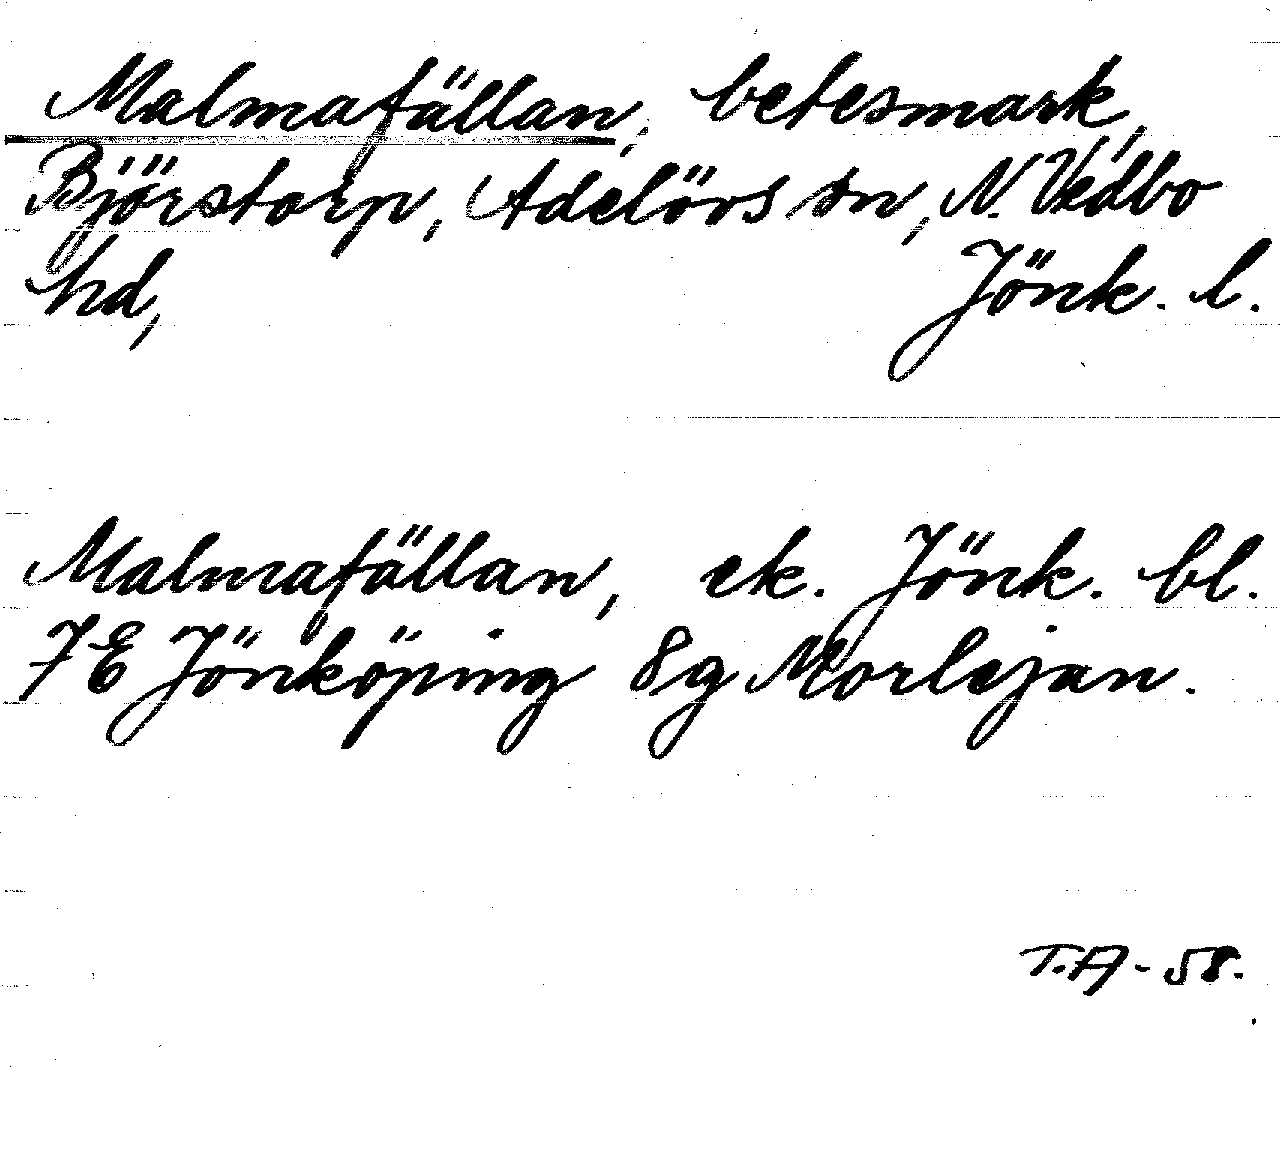 Malmafällan, betesmark,
Björstorp, Adelövs sn, N. Vedbo
hd, Jönk. l.
Malmafällan, ek. Jönk. bl.
7E Jönköping 8g Morlejan.
T.A-58.